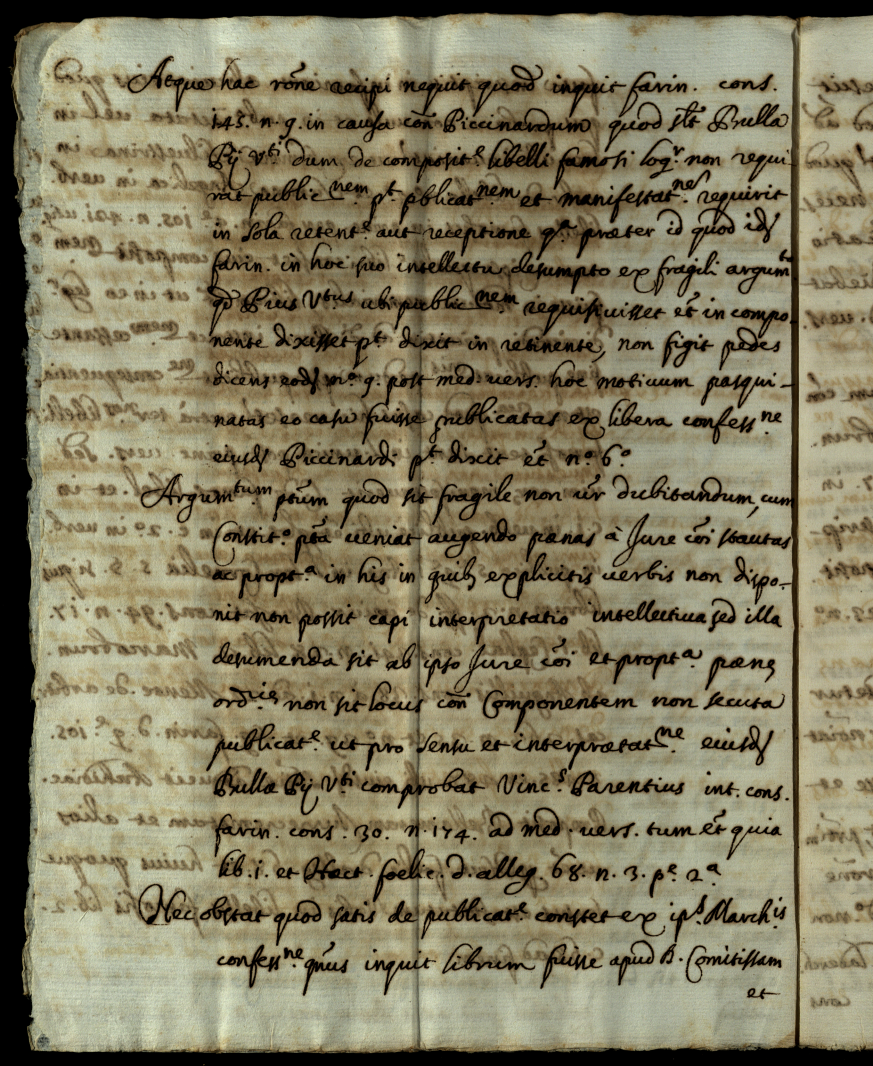 Atque hac rõne recipi nequit quod inquit farin. cons.
145. n. 9. in causa cõn Piccinardum quod st̃te Bulla
Pij V.ti dum de composit.e libelli famosi loq.r non requi-
rat public.nem p.t pblicat.nem et manifestat.nes requirit
in sola retent.e aut receptione q.a præter id quod idẽ
farin. in hoc suo intellectu desumpto ex fragili argum.to
qd̃ Pius V.tus ubi public.nem requisivisset et̃ in compo-
nente dixisset p.t dixit in retinente, non figit pedes
dicens eodẽ n.o 9. post med. vers. hoc motivum pasqui-
natas eo casu fuisse publicatas ex libera confess.ne
eiusdẽ Piccinardi p.t dixit et̃ n.o 6.o
Argum.tum ptũm quod sit fragile non vr̃ dubitandum, cum
Constit.o ptã veniat augendo pænas à Jure cõi statutas
ac propt.a in his in quibꝫ explicitis verbis non dispo-
nit non possit capi interpretatio intellectiva sed illa
desumenda sit ab ipso Jure cõi et propt.a pænę
ord.rie non sit locus cõn Componentem non secuta
publicat.e ut pro sensu et interprætat.ne eiusdẽ
Bullæ Pij V.ti comprobat Vinc.s Parentius int. cons.
farin. cons. 30. n. 174. ad med. vers. tum et̃ quia
lib. i. et Hect. foelic. d. alleg. 68. n. 3. p.e 2.a
Nec obstat quod satis de publicat.e constet ex ips. March.is
confess.ne qñus inquit librum fuisse apud B. Comitissam
et